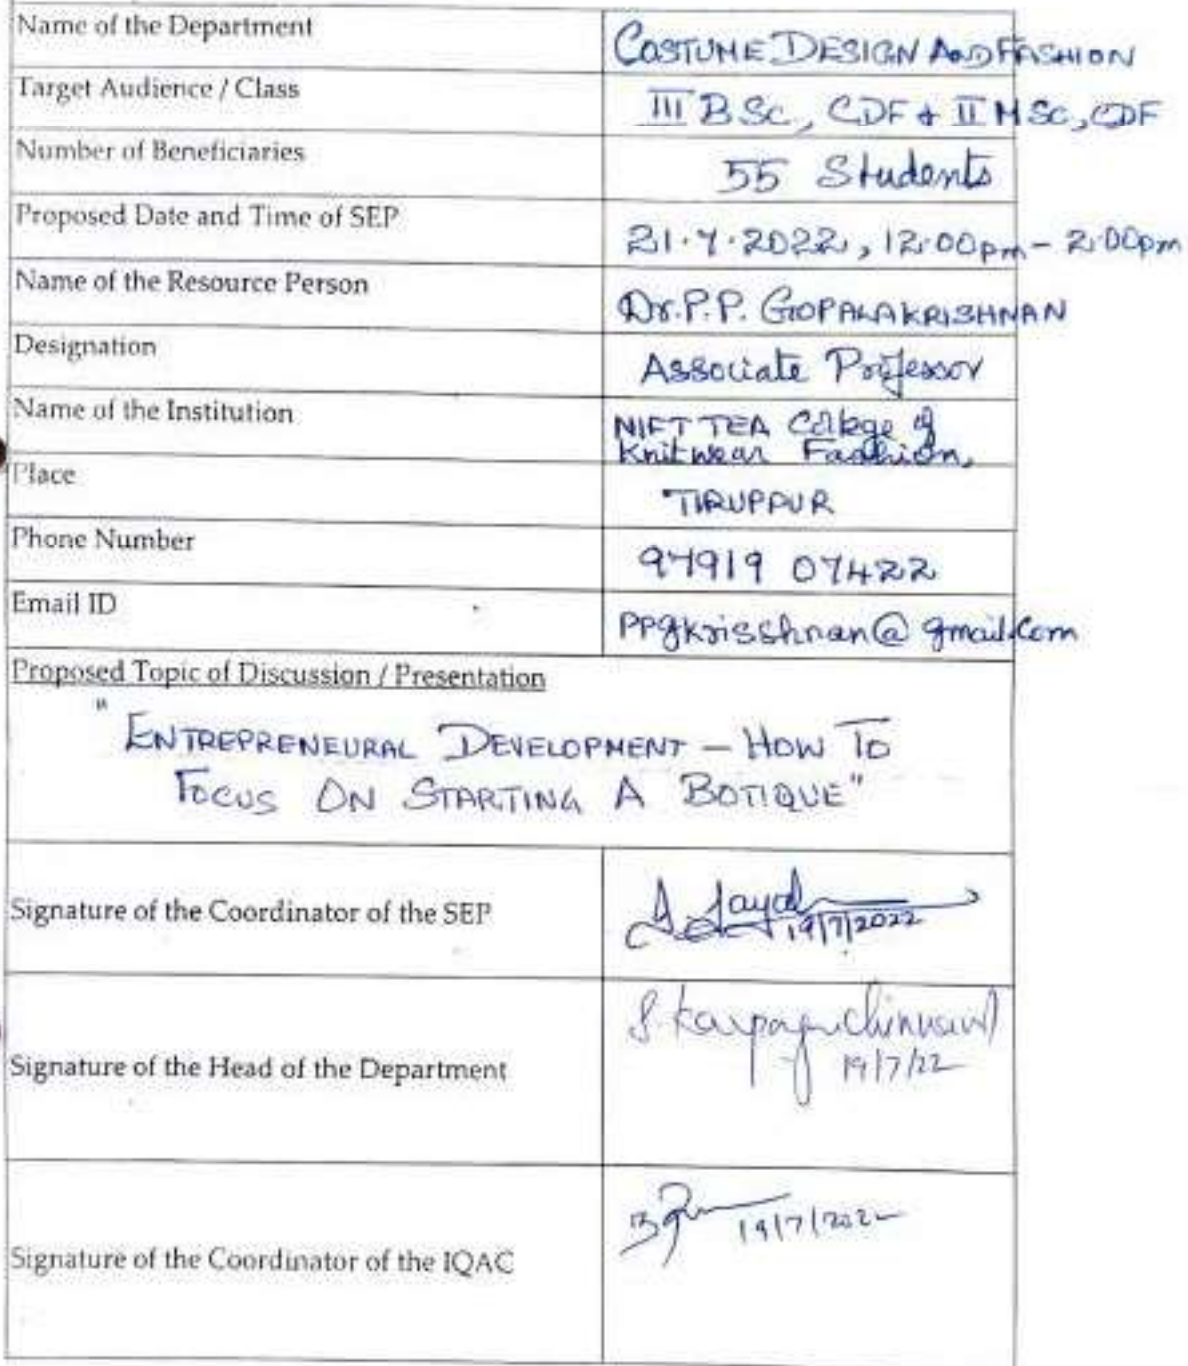 Name of the Department
COSTUME DESIGN AND FASHION
Target Audience / Class
III B Sc, CDF & II M Sc, CDF
Number of Beneficiaries
55 Students
Proposed Date and Time of SEP
21.7.2022, 12:00pm - 2:00pm
Name of the Resource Person
Dr. P.P. GOPALAKRISHNAN
Designation
Associate Professor
Name of the Institution
NIFT TEA College of
Knitwear Fashion,
Place
TIRUPPUR
Phone Number
97919 07422
Email ID
ppgkrisshnan@gmail.com
Proposed Topic of Discussion / Presentation
"ENTREPRENEURAL DEVELOPMENT – HOW TO
FOCUS ON STARTING A BOTIQUE"
Signature of the Coordinator of the SEP
19/7/2022
Signature of the Head of the Department
19/7/22
Signature of the Coordinator of the IQAC
19/7/2022